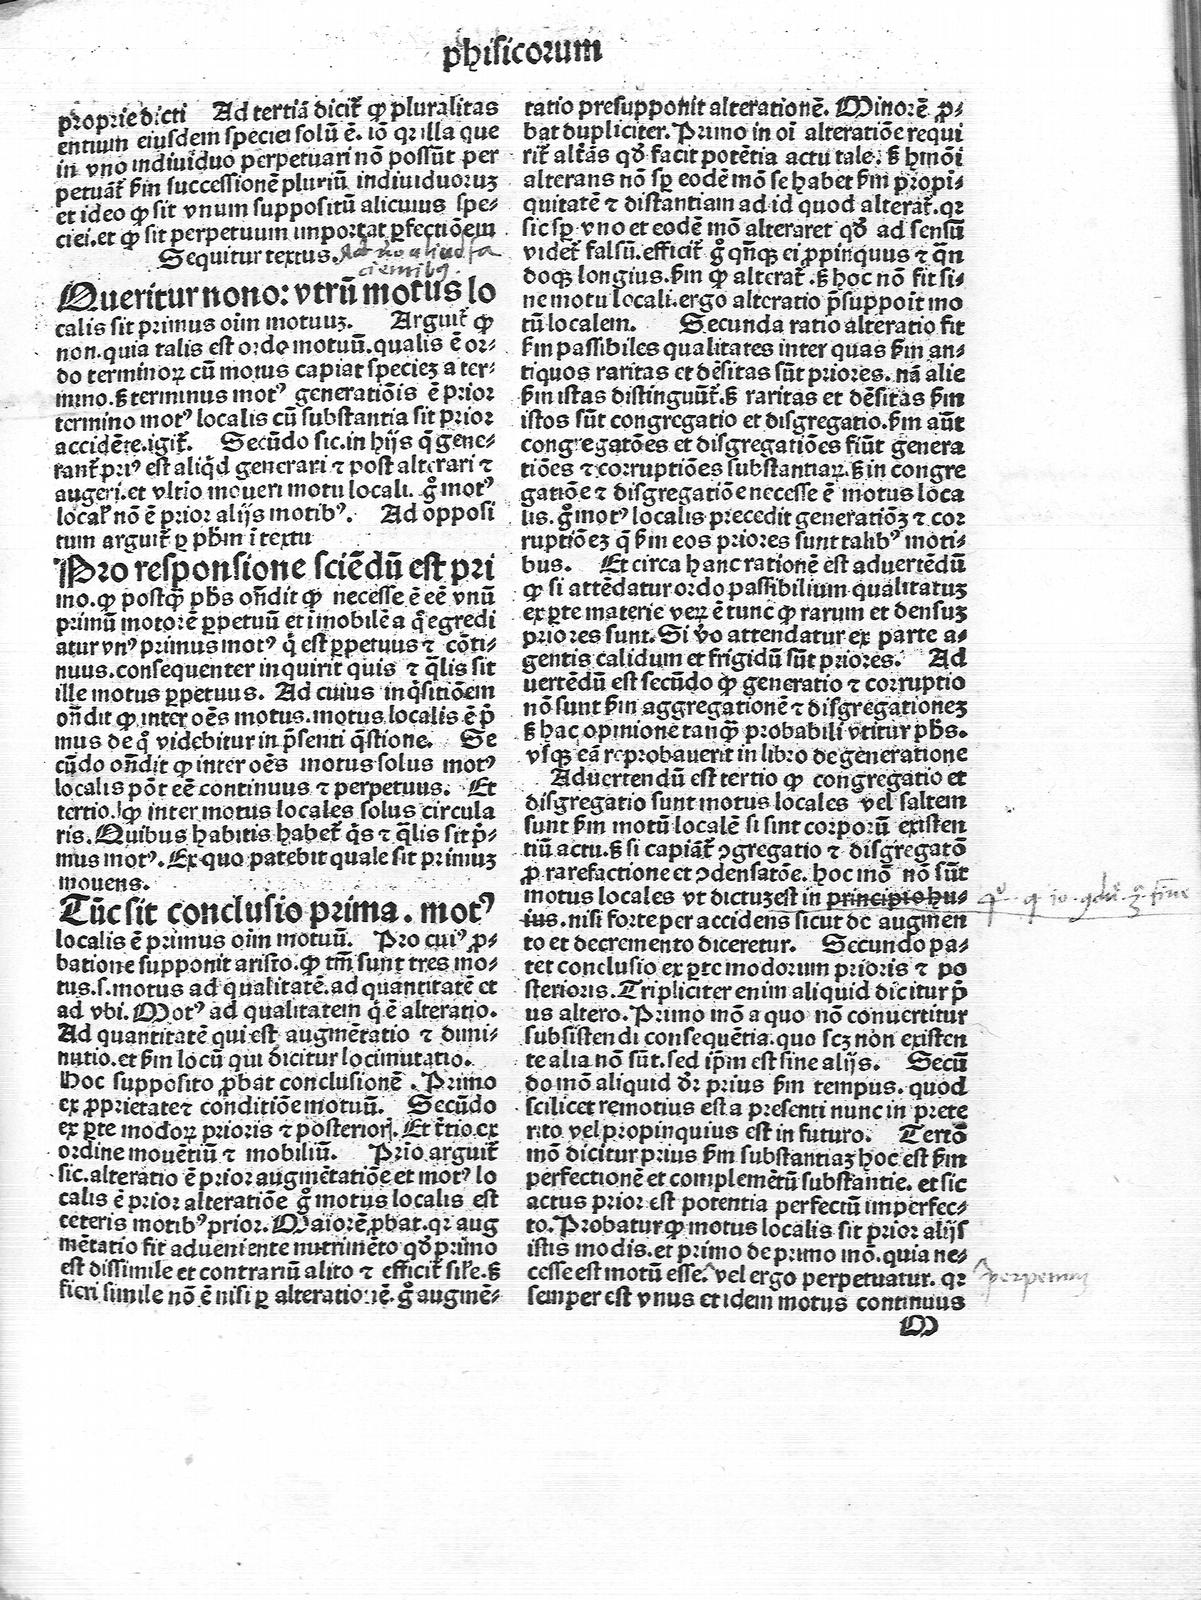 phisicorum
proprie dicti Ad tertiā dicit̄ ꝙ pluralitas
entium eiusdem speciei solū ē. iō qꝛ illa que
in vno indiuiduo perpetuari nō possūt per
petuāt̄ ẜm successionē pluriū indiuiduoꝛuꝫ
et ideo ꝙ sit vnum suppositū alicuius spe⸗
ciei. et ꝙ sit perpetuum impoꝛtat ꝑfectiōem
Sequitur textus.
Queritur nono: vtrū motus lo
calis sit pꝛimus oim motuuꝫ. Arguit̄ ꝙ
non. quia talis est oꝛdo motuū. qualis ē oꝛ⸗
do terminoꝝ cū motus capiat specieꝫ a ter⸗
mino. ꝫ terminus motꝰ generatiōis ē pꝛioꝛ
termino motꝰ localis cū substantia sit pꝛioꝛ
accidēte. igit̄. Secūdo sic. in hijs q̄ gene⸗
rant̄ pꝛiꝰ est aliqd̄ generari ⁊ post alterari ⁊
augeri. et vltio moueri motu locali. gͦ motꝰ
local̄ nō ē pꝛioꝛ alijs motibꝰ. Ad opposi
tum arguit̄ ꝑ pħm ī textu
Pꝛo responsione sciēdū est pꝛi
mo. ꝙ postꝙ̄ pħs oñdit ꝙ necesse ē eē vnū
pꝛimū motoꝛē ꝑpetuū et imobilē a q̊ egredi
atur vnꝰ pꝛimus motꝰ q̇ est ꝑpetuus ⁊ cōti⸗
nuus. consequenter inquirit quis ⁊ q̄lis sit
ille motus ꝑpetuus. Ad cuius inq̇sitiōem
oñdit ꝙ inter oēs motus. motus localis ē p̄
mus de q̊ videbitur in p̄senti q̄stione. Se
cūdo oñdit ꝙ inter oēs motus solus motꝰ
localis pōt eē continuus ⁊ perpetuus. Et
tertio. ꝙ inter motus locales solus circula
ris. Quibus habitis habet̄ q̇s ⁊ q̄lis sit p̄⸗
mus motꝰ. Ex quo patebit quale sit pꝛimuꝫ
mouens.
Tūc sit conclusio pꝛima. motꝰ
localis ē pꝛimus oim motuū. Pꝛo cuiꝰ ꝓ⸗
batione supponit aristo. ꝙ tm̄ sunt tres mo⸗
tus. s. motus ad qualitatē. ad quantitatē et
ad vbi. Motꝰ ad qualitatem q̇ ē alteratio.
Ad quantitatē qui est augmētatio ⁊ dimi⸗
nutio. et ẜm locū qui dicitur locimutatio.
Hoc supposito ꝓbat conclusionē. Pꝛimo
ex ꝓpꝛietate ⁊ conditiōe motuū. Secūdo
ex ꝑte modoꝝ pꝛioꝛis ⁊ posterioꝛꝭ. Et t̄tio. ex
oꝛdine mouētiū ⁊ mobiliū. Pꝛio arguit̄
sic. alteratio ē pꝛioꝛ augmētatiōe et motꝰ lo
calis ē pꝛioꝛ alteratiōe gͦ motus localis est
ceteris motibꝰ pꝛioꝛ. Maioꝛē ꝓbat. qꝛ aug
mētatio fit adueniente nutrimēto qd̄ pꝛimo
est dissimile et contrariū alito ⁊ efficit̄ sil̄e. ꝫ
fieri simile nō ē nisi ꝑ alterationē. gͦ augmē⸗
tatio presupponit alterationē. Minoꝛē ꝓ⸗
bat dupliciter. Pꝛimo in oī alteratiōe requi
rit̄ altās qd̄ facit potētia actu tale. ꝫ hmōi
alterans nō sꝑ eodē mō se habet ẜm pꝛopi⸗
quitatē ⁊ distantiam ad id quod alterat̄. qꝛ
sic sꝑ vno et eodē mō alteraret qd̄ ad sensū
videt̄ falsū. efficit̄ gͦ qñqꝫ ei ꝓpinquus ⁊ qñ
doqꝫ longius. ẜm ꝙ alterat̄. ꝫ hoc nō fit si⸗
ne motu locali. ergo alteratio p̄suppoit mo
tū localem. Secunda ratio alteratio fit
ẜm passibiles qualitates inter quas ẜm an⸗
tiquos raritas et dēsitas sūt pꝛioꝛes. nā alie
ẜm istas distinguūt̄. ꝫ raritas et dēsitas ẜm
istos sūt congregatio et disgregatio. ẜm aūt
congregatōes et disgregatiōes fiūt genera
tiōes ⁊ coꝛruptiōes substantiaꝝ. ꝫ in congre
gatiōe ⁊ disgregatiōe necesse ē motus loca
lis. gͦ motꝰ localis pꝛecedit generatiōꝫ ⁊ coꝛ
ruptiōeꝫ q̄ ẜm eos pꝛioꝛes sunt talibꝰ moti⸗
bus. Et circa hanc rationē est aduertēdū
ꝙ si attēdatur oꝛdo passibilium qualitatuꝫ
ex ꝑte materie veꝝ ē tunc ꝙ rarum et densuꝫ
pꝛioꝛes sunt. Si v̊o attendatur ex parte a⸗
gentis calidum et frigidū sūt pꝛioꝛes. Ad
uertēdū est secūdo ꝙ generatio ⁊ coꝛruptio
nō sunt ẜm aggregationē ⁊ disgregationeꝫ
ꝫ hac opinione tanꝙ̄ pꝛobabili vtitur pħs.
vsqꝫ eā repꝛobauerit in libꝛo de generatione
Aduertendū est tertio ꝙ congregatio et
disgregatio sunt motus locales vel saltem
sunt ẜm motū localē si sint coꝛpoꝛū existen
tiū actu. ꝫ si capiāt̄ ꝯgregatio ⁊ disgregatō
ꝓ rarefactione et ꝯdensatōe. hoc mō nō sūt
motus locales vt dictuꝫ est in pꝛincipio hu⸗
ius. nisi foꝛte per accidens sicut de augmen
to et decremento diceretur. Secundo pa⸗
tet conclusio ex ꝑte modoꝛum pꝛioꝛis ⁊ po
sterioꝛis. Tripliciter enim aliquid dicitur p̄
us altero. Pꝛimo mō a quo nō conuertitur
subsistendi consequētia. quo scꝫ non existen
te alia nō sūt. sed ip̄m est sine alijs. Secū
do mō aliquid dꝛ pꝛius ẜm tempus. quod
scilicet remotius est a pꝛesenti nunc in pꝛete
rito vel pꝛopinquius est in futuro. Tertō
mō dicitur pꝛius ẜm substantiaꝫ hoc est ẜm
perfectionē et complemētū substantie. et sic
actus pꝛioꝛ est potentia perfectū imperfec⸗
to. Pꝛobatur ꝙ motus localis sit pꝛioꝛ alijs
istis modis. et pꝛimo de pꝛimo mō. quia ne⸗
cesse est motū esse. vel ergo perpetuatur. qꝛ
perpetuus
semper est vnus et idem motus continuus
M